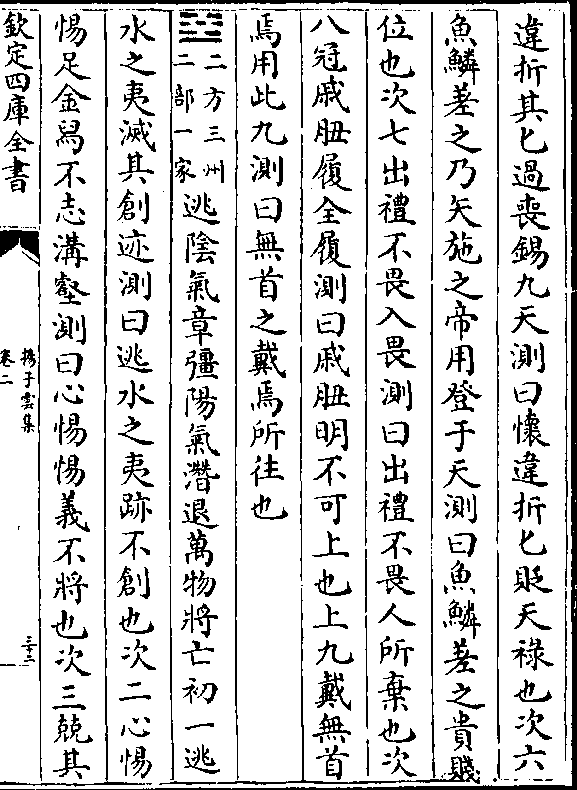 違折其匕過喪錫九天測曰懷違折匕貶天祿也次六
魚鱗差之乃矢施之帝用登于天測曰魚鱗差之貴賤
位也次七出禮不畏入畏測曰出禮不畏人所棄也次
八冠戚䏔履全履測曰戚䏔明不可上也上九戴無首
焉用此九測曰無首之戴焉所往也
䷲二方三州二部一家逃陰氣章彊陽氣潛退萬物將亡初一逃
水之夷滅其創迹測曰逃水之夷跡不創也次二心惕
惕足金舄不志溝壑測曰心惕惕義不將也次三兢其
欽定四庫全書
揚子雲集
卷二
三十二